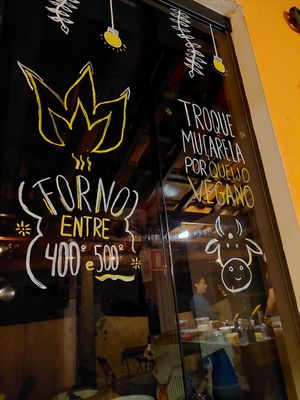 FORNO
ENTRE
400° e 500°
TROQUE
MUÇARELA
POR QUEIJO
VEGANO